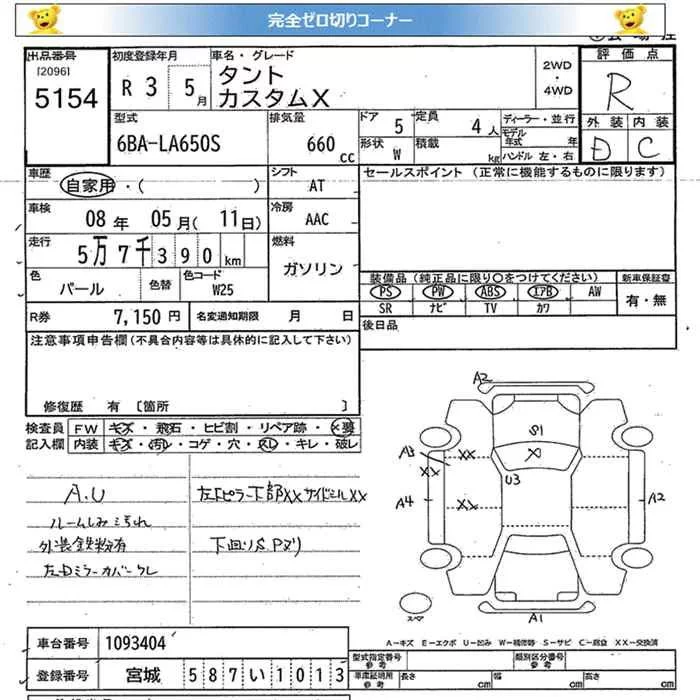 完全ゼロ切りコーナー
出品番号 初度登録年月 車名・グレード 評価点
[2096] R 3 5月 タント 2WD・4WD R
5154 カスタムX 外装 内装
型式 排気量 ドア 5 定員 4人 ディーラー・並行 D C
6BA-LA650S 660cc 形状 W 積載 kg モデル年式 年
ハンドル 左・右
車歴 自家用・( ) シフト AT セールスポイント (正常に機能するものに限ります)
車検 08年 05月(11日) 冷房 AAC
走行 5万7千390km 燃料 ガソリン
装備品(純正品に限り○をつけてください) 新車保証書
色 パール 色替 色コード W25 PS PW ABS エアB AW 有・無
SR ナビ TV カワ
R券 7,150円 名変通知期限 月 日 後日品
注意事項申告欄(不具合内容等は具体的に記入して下さい)
修復歴 有 〔箇所 〕
検査員 FW キズ・飛石・ヒビ割・リペア跡・×要
記入欄 内装 キズ・汚れ・コゲ・穴・スレ・キレ・破レ
A.U 左Fピラー下部XXサイドシルXX
ルームしみ汚れ
外装鉄粉有 下回りS Pヌリ
左Dミラーカバーワレ
A2
S1
A3 XX X
XX U3
A4 XX A2
スペア A1
A－キズ E－エクボ U－凹み W－補修跡 S－サビ C－腐食 XX－交換済
車台番号 1093404 型式指定番号 参考 類別区分番号 参考
登録番号 宮城 587い1013 車庫証明用 参考 長さ cm 幅 cm 高さ cm